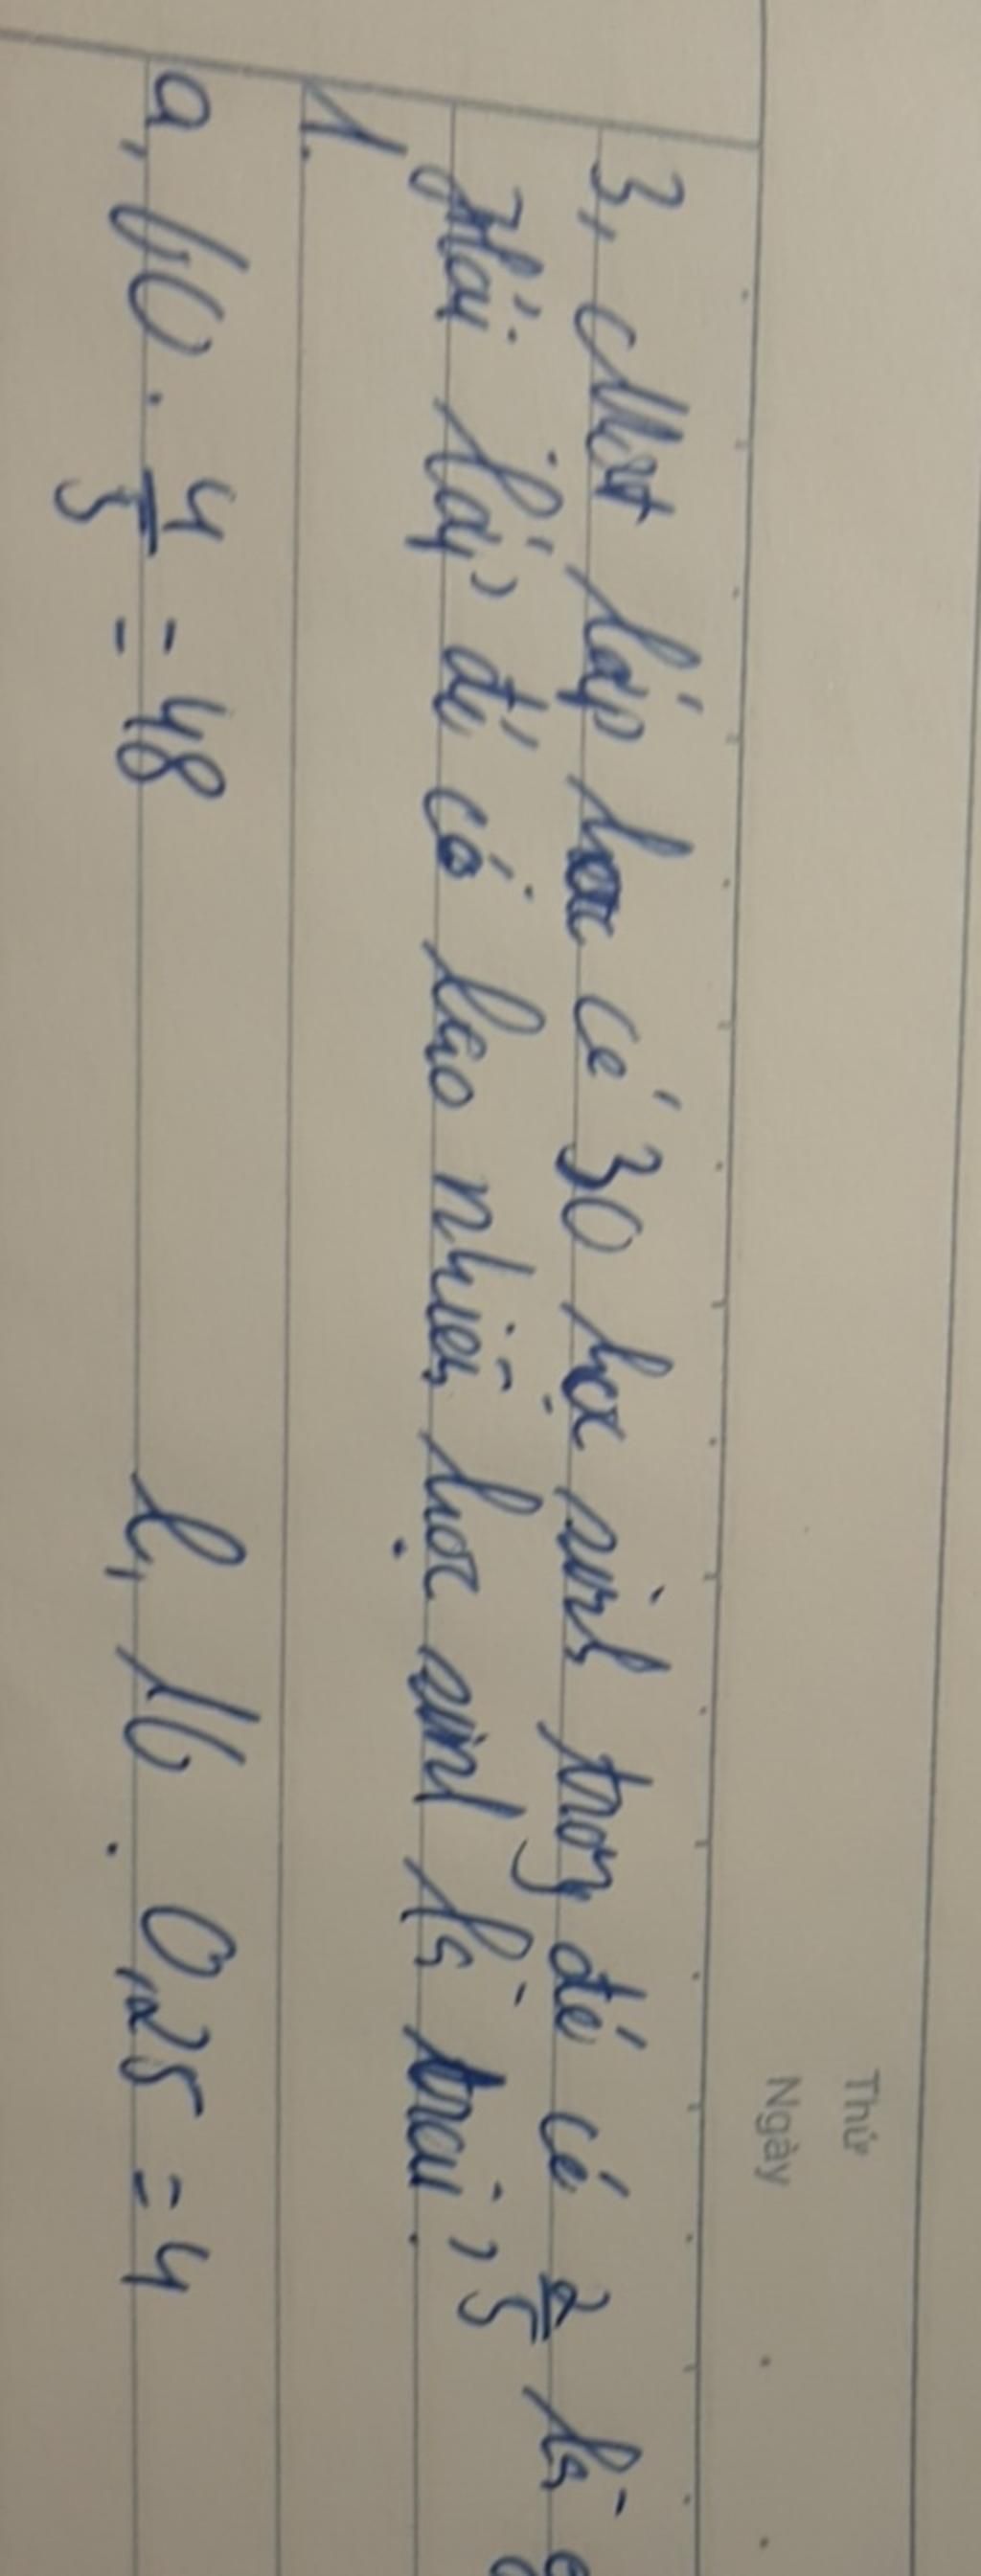 Thứ
Ngày
3, Một lớp học có 30 học sinh trong đó có 2/5 là
Hỏi lớp đó có bao nhiêu học sinh là trai?
1.
a, 60 . 4/5 = 48 b, 16 . 0,25 = 4